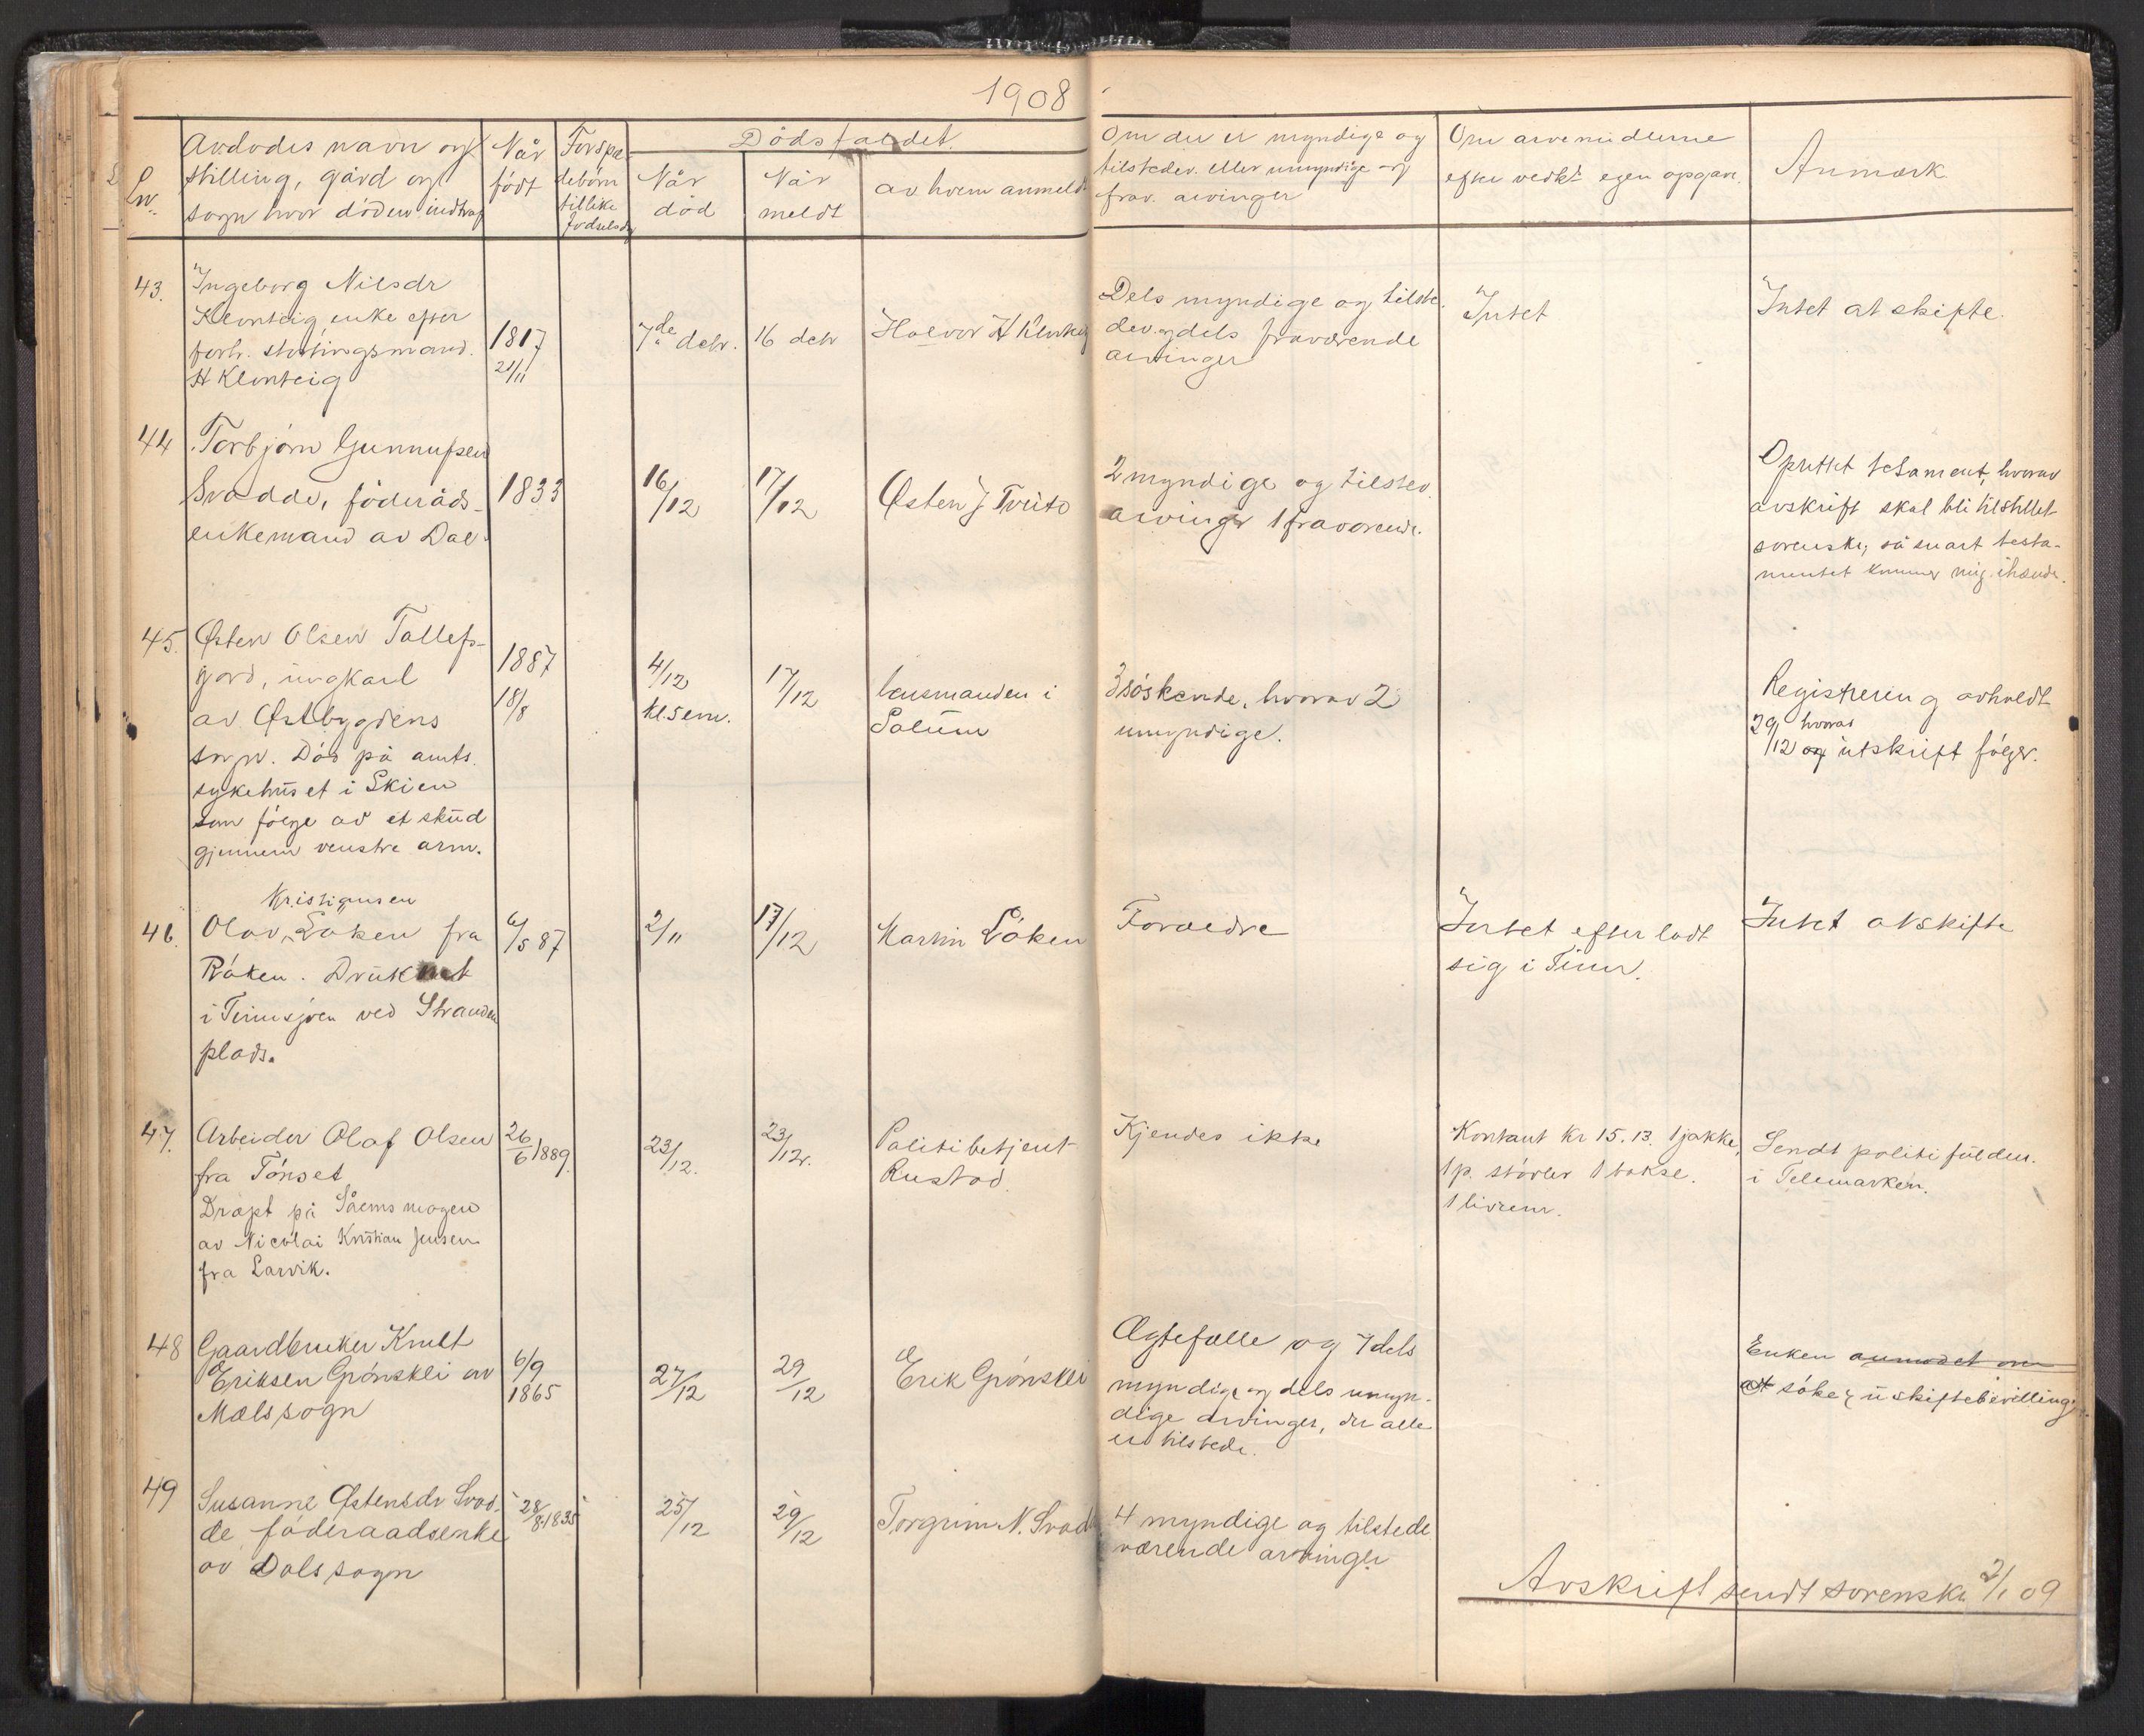 1908
Lnr.
Avdødes navn og
stilling, gård og
sogn hvor døden indtraf
Når
født
Forspæ-
debørn
tillike
fødselsdg
Dødsfaldet.
Når
død
Når
meldt
av hvem anmeldt
Om der er myndige og
tilstedev. eller umyndige og
frav. arvinger
Om arvemidlerne
efter vedk. egen opgave.
Anmærk
43.
Ingeborg Nilsdr
Klonteig, enke efter
forh. stortingsmand.
H Klonteig
1817
21/11
7de decbr.
16 decbr
Halvor H Klonteig
Dels myndige og tilste-
dev. og dels fraværende
arvinger
Intet
Intet at skifte.
44
Torbjørn Gunnufsen
Svadde, føderåds-
enkemand av Dal
1833
16/12
17/12
Østen J Tveito
2 myndige og tilstev.
arvinger 1 fraværende.
Oprettet testament, hvorav
avskrift skal bli tilstillet
sorenskr, så snart testa-
mentet kommer mig ihænde.
45.
Østen Olsen Tollefs-
gord, ungkarl
av Østbygdens
sogn. Død på amts.
sykehuset i Skien
som følge av et skud
gjennem venstre arm.
1887
18/8
4/12
kl. 5 em.
17/12
lensmanden i
Solum
3 søskende, hvorav 2
umyndige.
Registrering avholdt
29/12 og hvorav
utskrift følger.
46.
Kristiansen
Olav Løken fra
Råken. Druknet
i Tinnsjøen ved Stranden
plads.
6/5 87
2/11
17/12
Martin Løken
Forældre
Intet efterladt
sig i Tinn.
Intet at skifte
47.
Arbeider Olaf Olsen
fra Tønset
Dræpt på Såemsmoen
av Nicolai Kristian Jensen
fra Larvik.
26/6 1889.
23/12.
23/12.
Politibetjent
Rustad
Kjendes ikke
Kontant kr 15.13. 1 jakke,
1 p. støvler 1 bokse.
1 livrem.
Sendt politifuldm.
i Telemarken.
48
Gaardbruker Knut
Eriksen Grønskli av
Mæls sogn
6/9
1865
27/12
29/12
Erik Grønskli
Ægtefælle og 7 dels
myndige og dels umyn-
dige arvinger, der alle
er tilstede.
Enken anmodet om
at søker uskiftebevilling.
49
Susanne Østensdr Svad-
de føderaadsenke
av Dals sogn
28/8 1835
25/12
29/12
Torgrim N. Svadde
4 myndige og tilstede
værende arvinger
Avskrift sendt sorenskr. 2/1 09